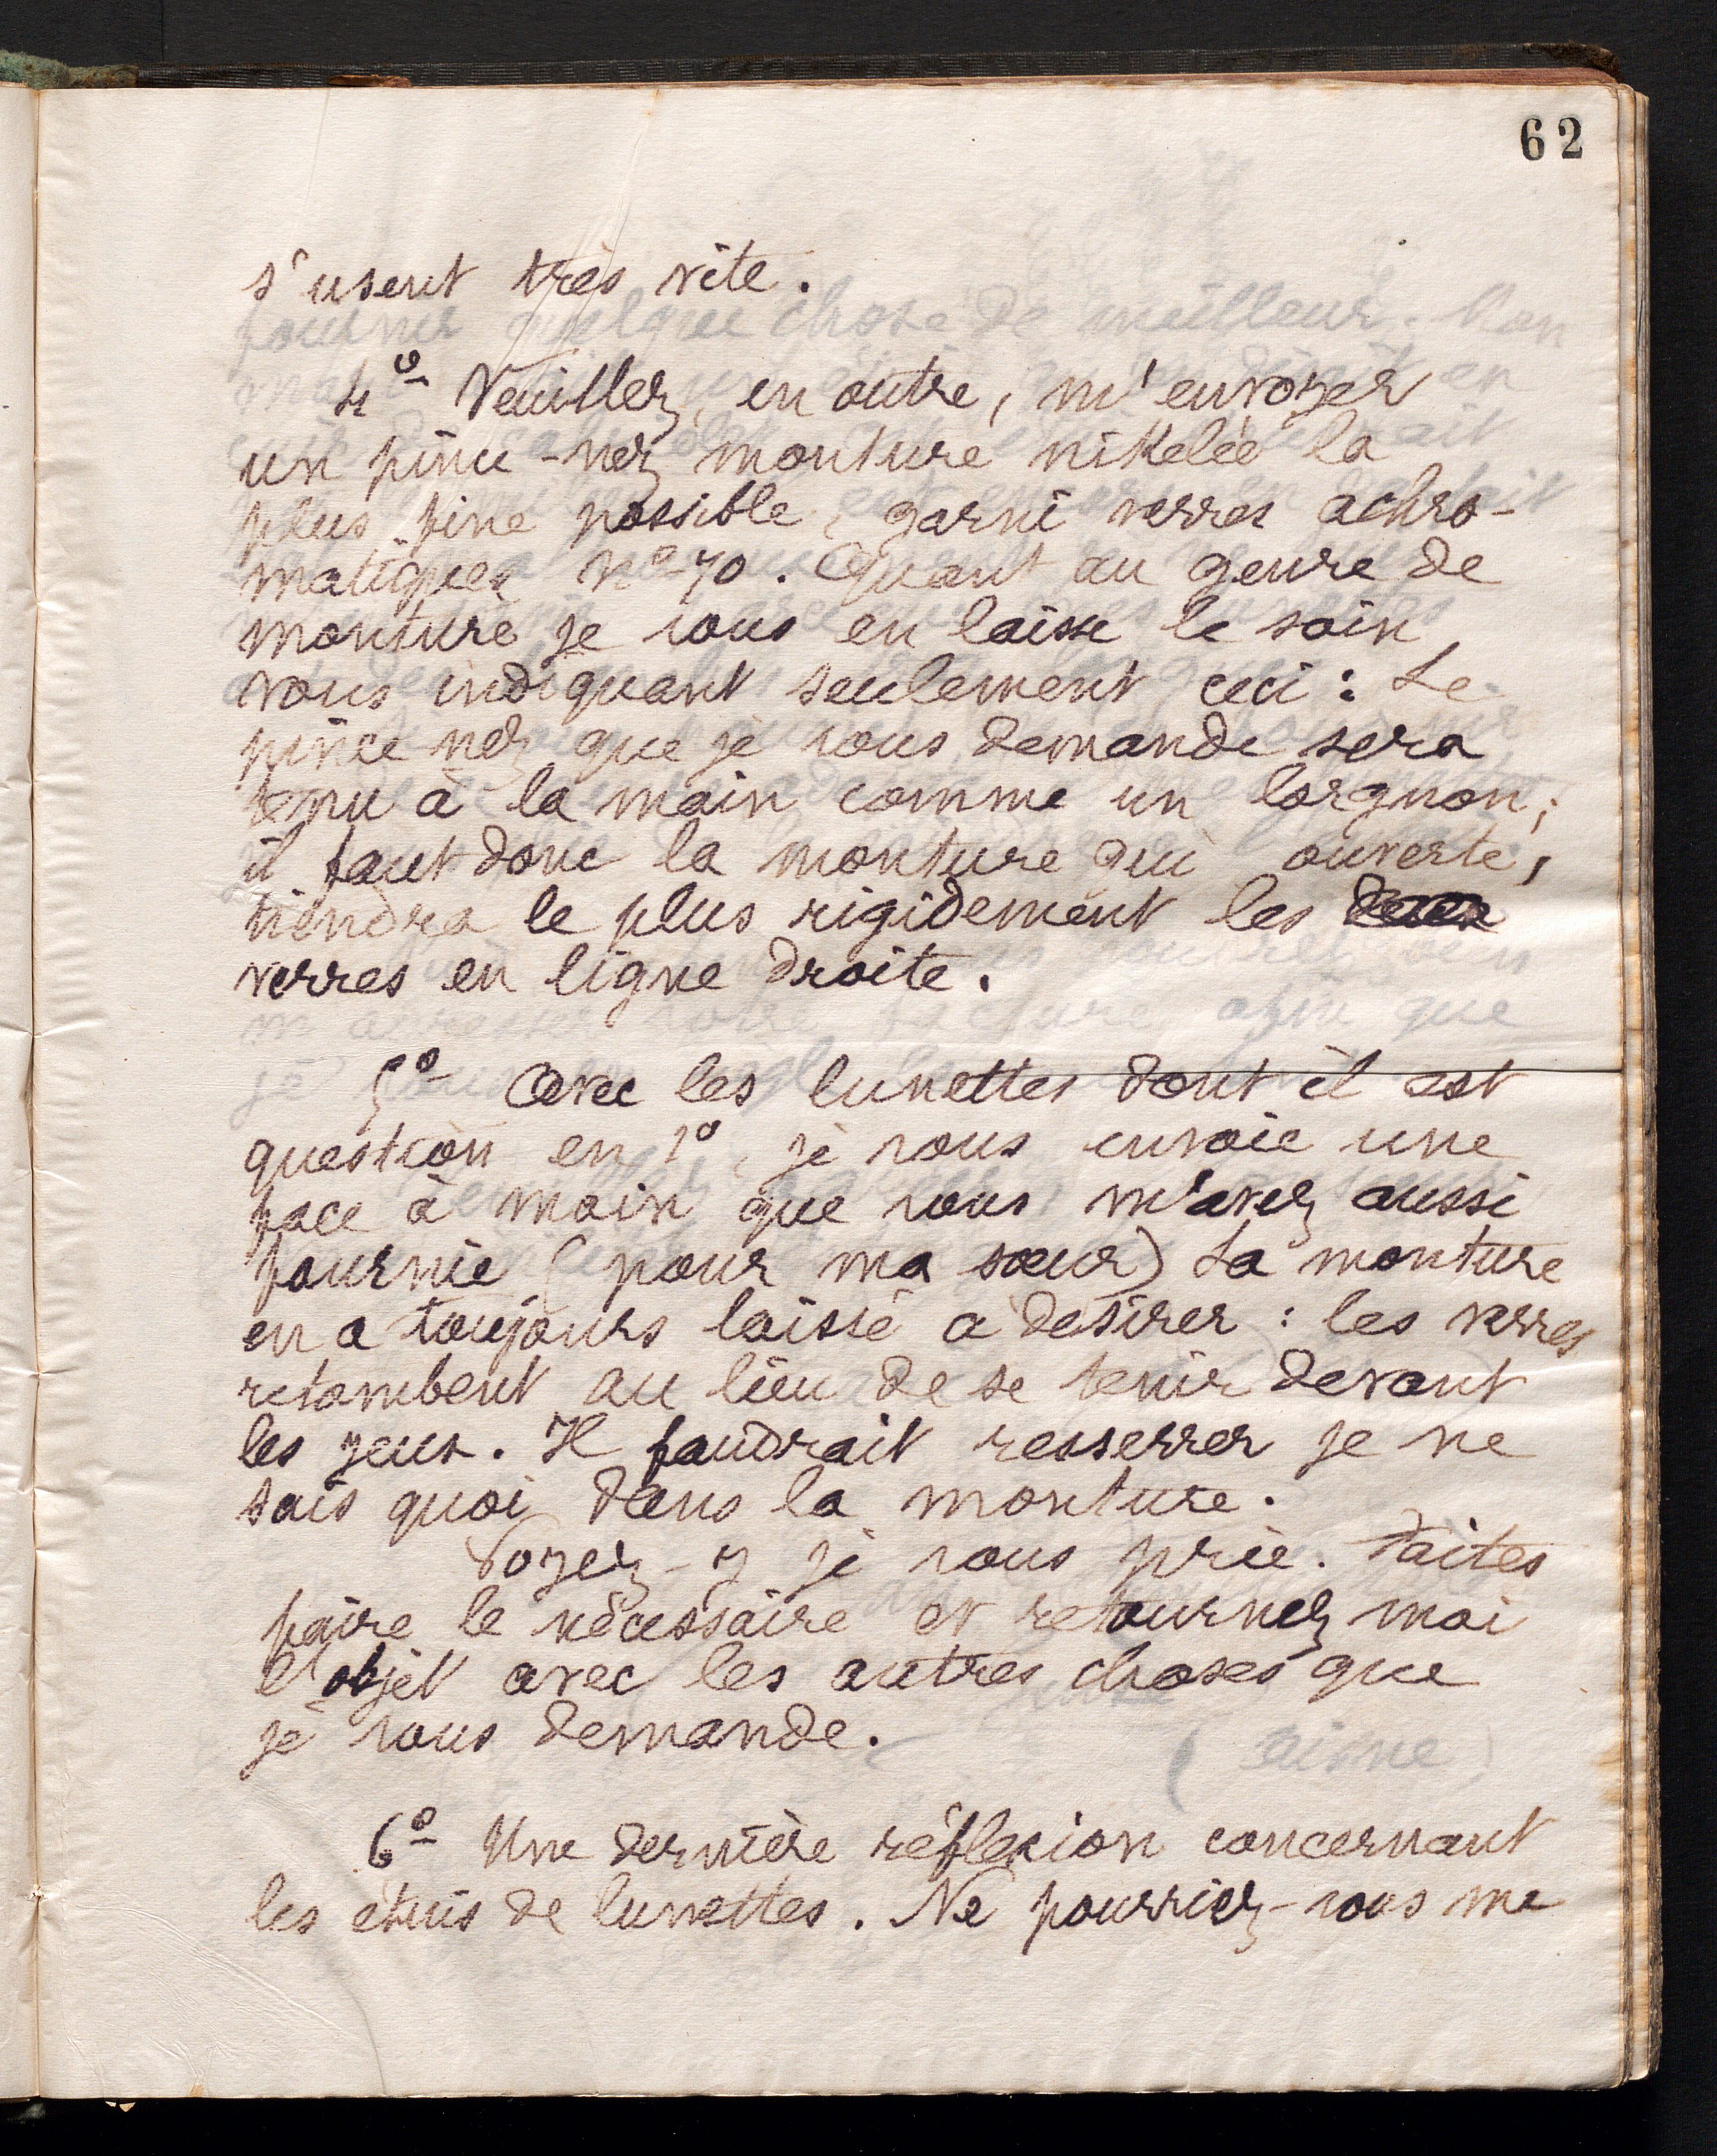 62
s'usent très vite.
4º Veuillez, en outre, m'envoyer
un pince-nez monture nikelée la
plus fine possible, garni verres achro-
matiques nº 70. Quant au genre de
monture je vous en laisse le soin,
vous indiquant seulement ceci : Le
pince nez que je vous demande sera
tenu à la main comme un lorgnon ;
il faut donc la monture qui ouverte,
tiendra le plus rigidement les deux
verres en ligne droite.
5º Avec les lunettes dont il est
question en 1º, je vous envoie une
face à main que vous m'avez aussi
fournie (pour ma sœur) La monture
en a toujours laissé à desirer : les verres
retombent au lieu de se tenir devant
les yeux. Il faudrait resserrer je ne
sais quoi dans la monture.
Voyez-y je vous prie. Faites
faire le nécessaire et retournez moi
l'objet avec les autres choses que
je vous demande.
6º Une dernière réflexion concernant
les étuis de lunettes. Ne pourriez-vous me